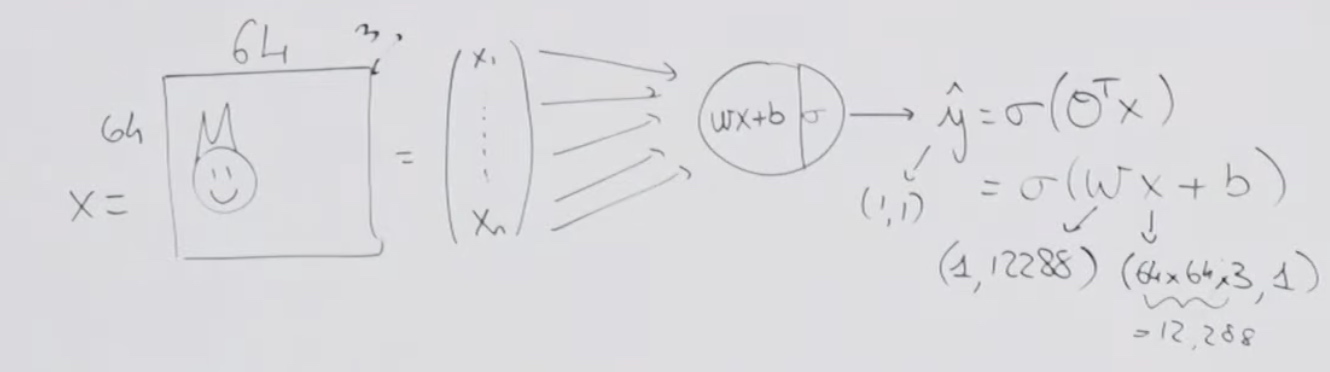 64 3.
64
x = = (x₁ ⋮ xₙ)
wx+b σ
ŷ = σ(θᵀx)
(1,1) = σ(wx + b)
(1,12288) (64x64x3, 1)
= 12,288